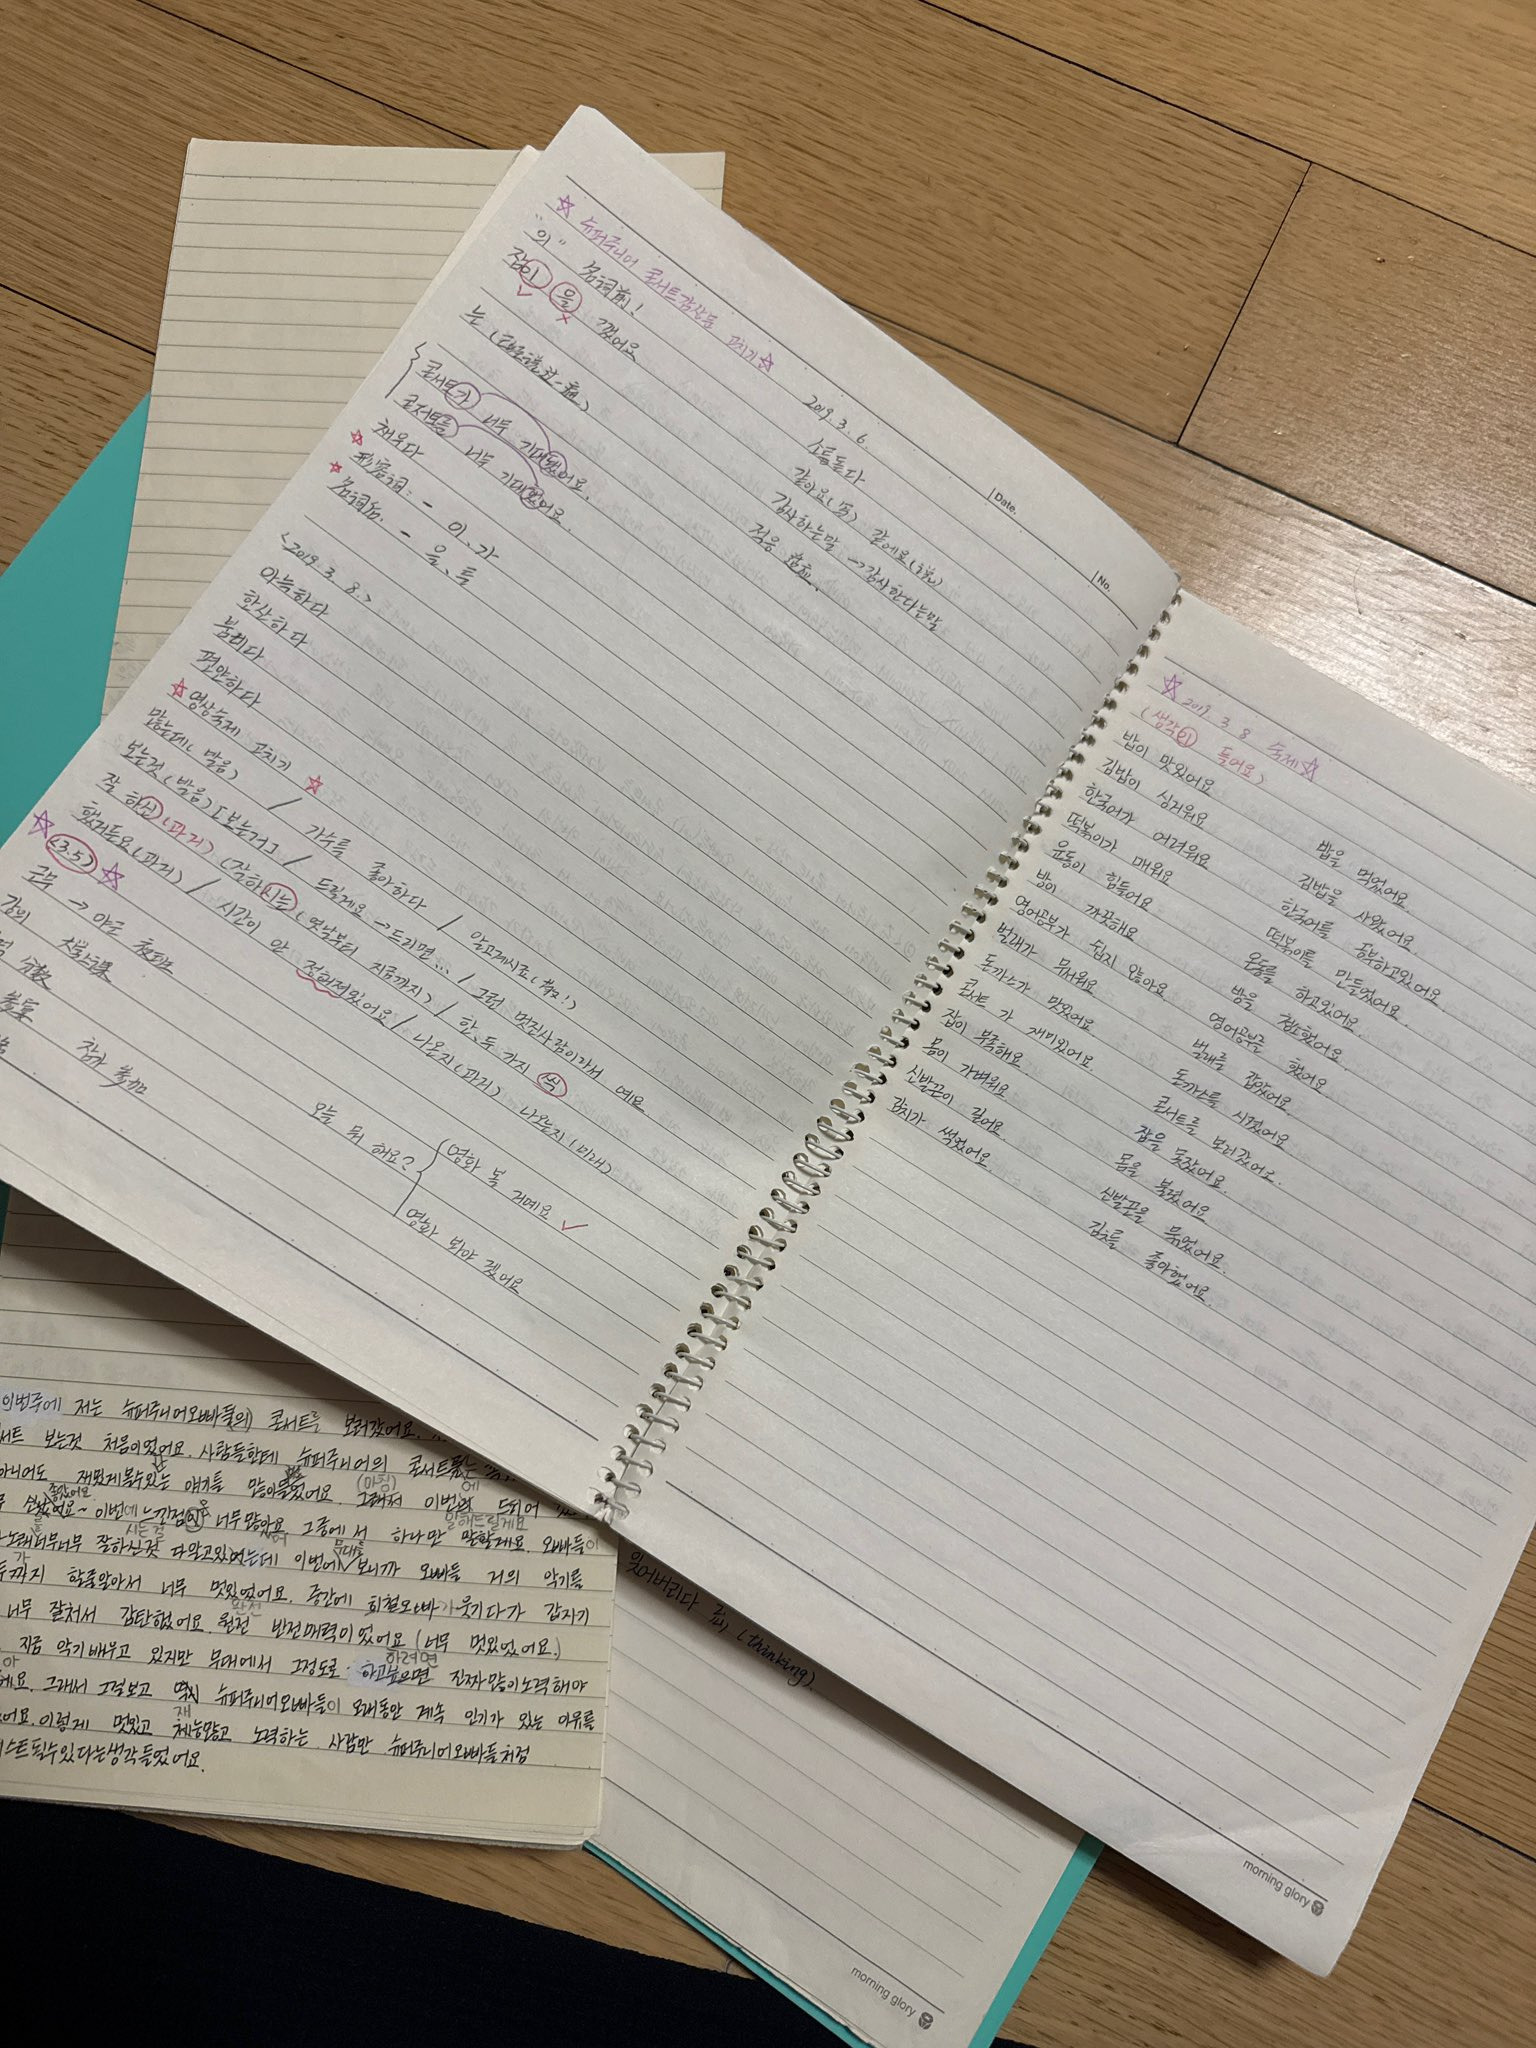 ☆ 슈퍼주니어 콘서트감상문 고치기 ☆
"의" 名词前!
잠이 을 깼어요
는
콘서트가 너무 기대됐어요.
콘서트를 너무 기대했어요.
채우다
☆ 形容词: - 이, 가
☆ 名词 - 을, 를
2019. 3. 6
소름돋다
같아요(写) 같에요(说)
감사하는말 → 감사한다는말
적응
Date.
No.
<2019. 3. 8.>
아늑하다
한산하다
붐비다
편안하다
☆ 영상숙제 고치기 ☆
많는데(발음) / 가수를 좋아하다 / 알고계시죠
보는것(발음) [보는거] / 드릴게요 → 드리면... / 그런 멋진사람이라서 예요.
잘 하신(과거) (잘하시는(옛날부터 지금까지) / 한, 두 가지 씩
했거든요(과거) / 시간이 안 정해져있어요 / 나온지(과거) 나오는지(미래)
☆ <3.5> ☆
→ 야근
강의
참가 参加
오늘 뭐 해요?
영화 볼 거예요 ✓
영화 봐야 겠어요
☆ 2019. 3 8 숙제 ☆
(생각이 들어요)
밥이 맛있어요 밥을 먹었어요.
김밥이 싱거워요 김밥을 사왔어요.
한국어가 어려워요 한국어를 공부하고있어요.
떡볶이가 매워요 떡볶이를 만들었어요.
운동이 힘들어요 운동을 하고있어요.
방이 깨끗해요 방을 청소했어요.
영어공부가 쉽지 않아요 영어공부를 했어요
벌레가 무서워요 벌레를 잡았어요.
돈까스가 맛있어요 돈까스를 시켰어요
콘서트 가 재미있어요. 콘서트를 보러갔어요.
잠이 부족해요 잠을 못잤어요.
몸이 가벼워요 몸을 풀었어요
신발끈이 길어요. 신발끈을 묶었어요.
김치가 썩었어요. 김치를 좋아했어요.
morning glory
이번주에 저는 슈퍼주니어오빠들(의) 콘서트를 보러갔어요.
보는것 처음이었어요. 사람들한테 슈퍼주니어의 콘서트
아니어도 재밌게볼수있는 얘기를 많이들었어요. 그래서 이번에 드디어
(마침)
좋았어요
이번에 느낀점이 너무많아요 그중에서 하나만 말할게요. 오빠들이
말해드릴게요
시는걸
노래너무너무 잘하신것 다알고있었는데 이번에 보니까 오빠들 거의 악기를
무대를
까지 할줄알아서 너무 멋있었어요. 중간에 희철오빠가웃기다가 갑자기
너무 잘쳐서 감탄했어요. 원전 반전매력이었어요 (너무 멋있었어요.)
완전
지금 악기배우고 있지만 무대에서 그정도로 하고싶으면 진짜많이노력해야
하려면
그래서 그걸보고 역시 슈퍼주니어오빠들이 오래동안 계속 인기가 있는 이유를
이렇게 멋있고 체능많고 노력하는 사람만 슈퍼주니어오빠들처럼
재
될수있다는생각들었어요.
잊어버리다 忘 (thinking)
morning glory